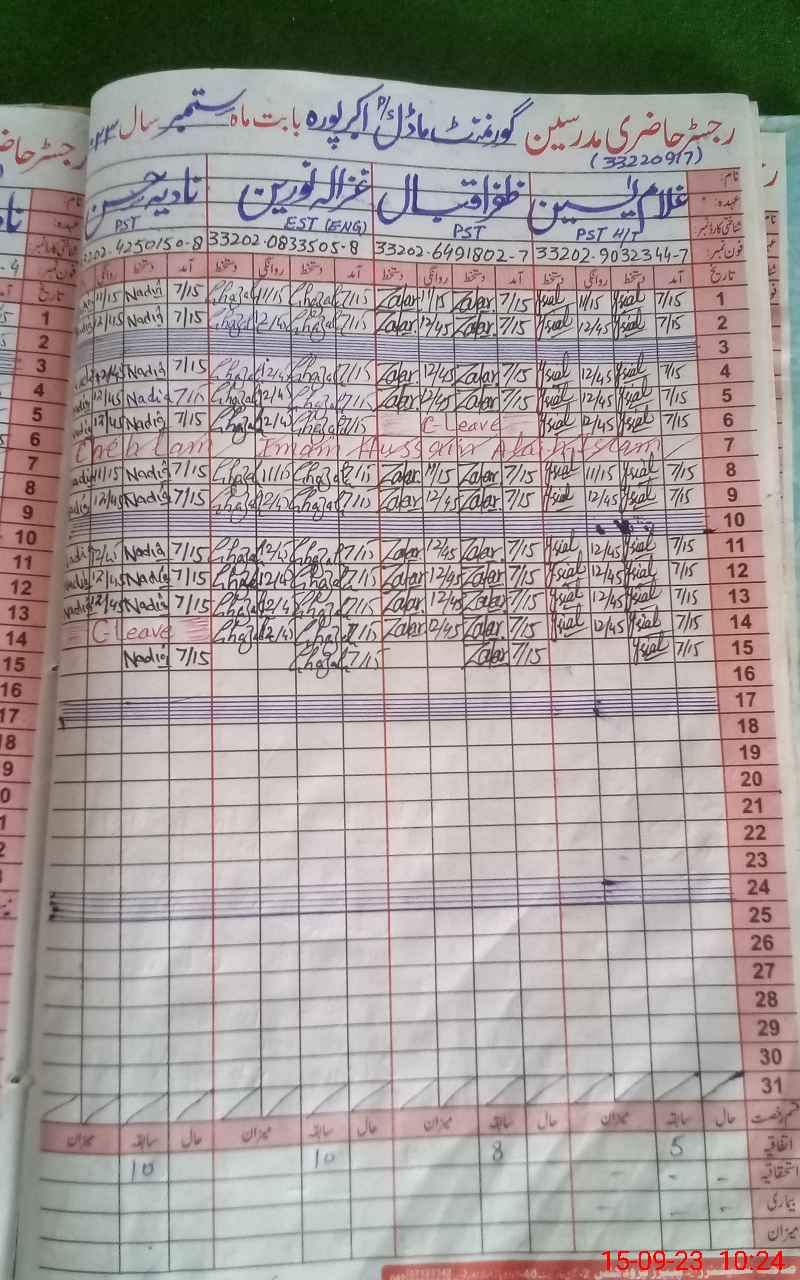 رجسٹر حاضری مدرسین گورنمنٹ ماڈل P/S اکبر پورہ بابت ماہ ستمبر سال ۲۳
(33220917)
نام: غلام یٰسین ظفر اقبال غزالہ نورین نادیہ حسن
عہدہ: PST H/T PST EST (ENG) PST
شناختی کارڈ نمبر
فون نمبر: 33202-9032344-7 33202-6491802-7 33202-0833505-8 3202-4250150-8
تاریخ آمد دستخط روانگی دستخط آمد دستخط روانگی دستخط آمد دستخط روانگی دستخط آمد دستخط روانگی
1 7/15 Ysial 11/15 Ysial 7/15 Zafar 11/15 Zafar 7/15 Ghazal 11/15 Ghazal 7/15 Nadia 11/15
2 7/15 Ysial 12/45 Ysial 7/15 Zafar 12/45 Zafar 7/15 Ghazal 12/45 Ghazal 7/15 Nadia 12/15
3
4 7/15 Ysial 12/45 Ysial 7/15 Zafar 12/45 Zafar 7/15 Ghazal 12/45 Ghazal 7/15 Nadia 12/45
5 7/15 Ysial 12/45 Ysial 7/15 Zafar 12/45 Zafar 7/15 Ghazal 12/45 Ghazal 7/15 Nadia 12/45
6 7/15 Ysial 12/45 Ysial C-Leave 7/15 Ghazal 12/45 Ghazal 7/15 Nadia 12/45
7 Chehlam Imam Hussain Alaih Islam
8 7/15 Ysial 11/15 Ysial 7/15 Zafar 11/15 Zafar 7/15 Ghazal 11/15 Ghazal 7/15 Nadia 11/15
9 7/15 Ysial 12/45 Ysial 7/15 Zafar 12/45 Zafar 7/15 Ghazal 12/45 Ghazal 7/15 Nadia 12/45
10
11 7/15 Ysial 12/45 Ysial 7/15 Zafar 12/45 Zafar 7/15 Ghazal 12/45 Ghazal 7/15 Nadia 12/45
12 7/15 Ysial 12/45 Ysial 7/15 Zafar 12/45 Zafar 7/15 Ghazal 12/45 Ghazal 7/15 Nadia 12/45
13 7/15 Ysial 12/45 Ysial 7/15 Zafar 12/45 Zafar 7/15 Ghazal 12/45 Ghazal 7/15 Nadia 12/45
14 7/15 Ysial 12/45 Ysial 7/15 Zafar 12/45 Zafar 7/15 Ghazal 12/45 Ghazal C-Leave
15 7/15 Ysial 7/15 Zafar 7/15 Ghazal 7/15 Nadia
16
17
18
19
20
21
22
23
24
25
26
27
28
29
30
31
قسم رخصت حال سابقہ میزان حال سابقہ میزان حال سابقہ میزان حال سابقہ میزان
اتفاقیہ 5 8 10 10
استحقاقیہ
بیماری
میزان
15-09-23 10:24